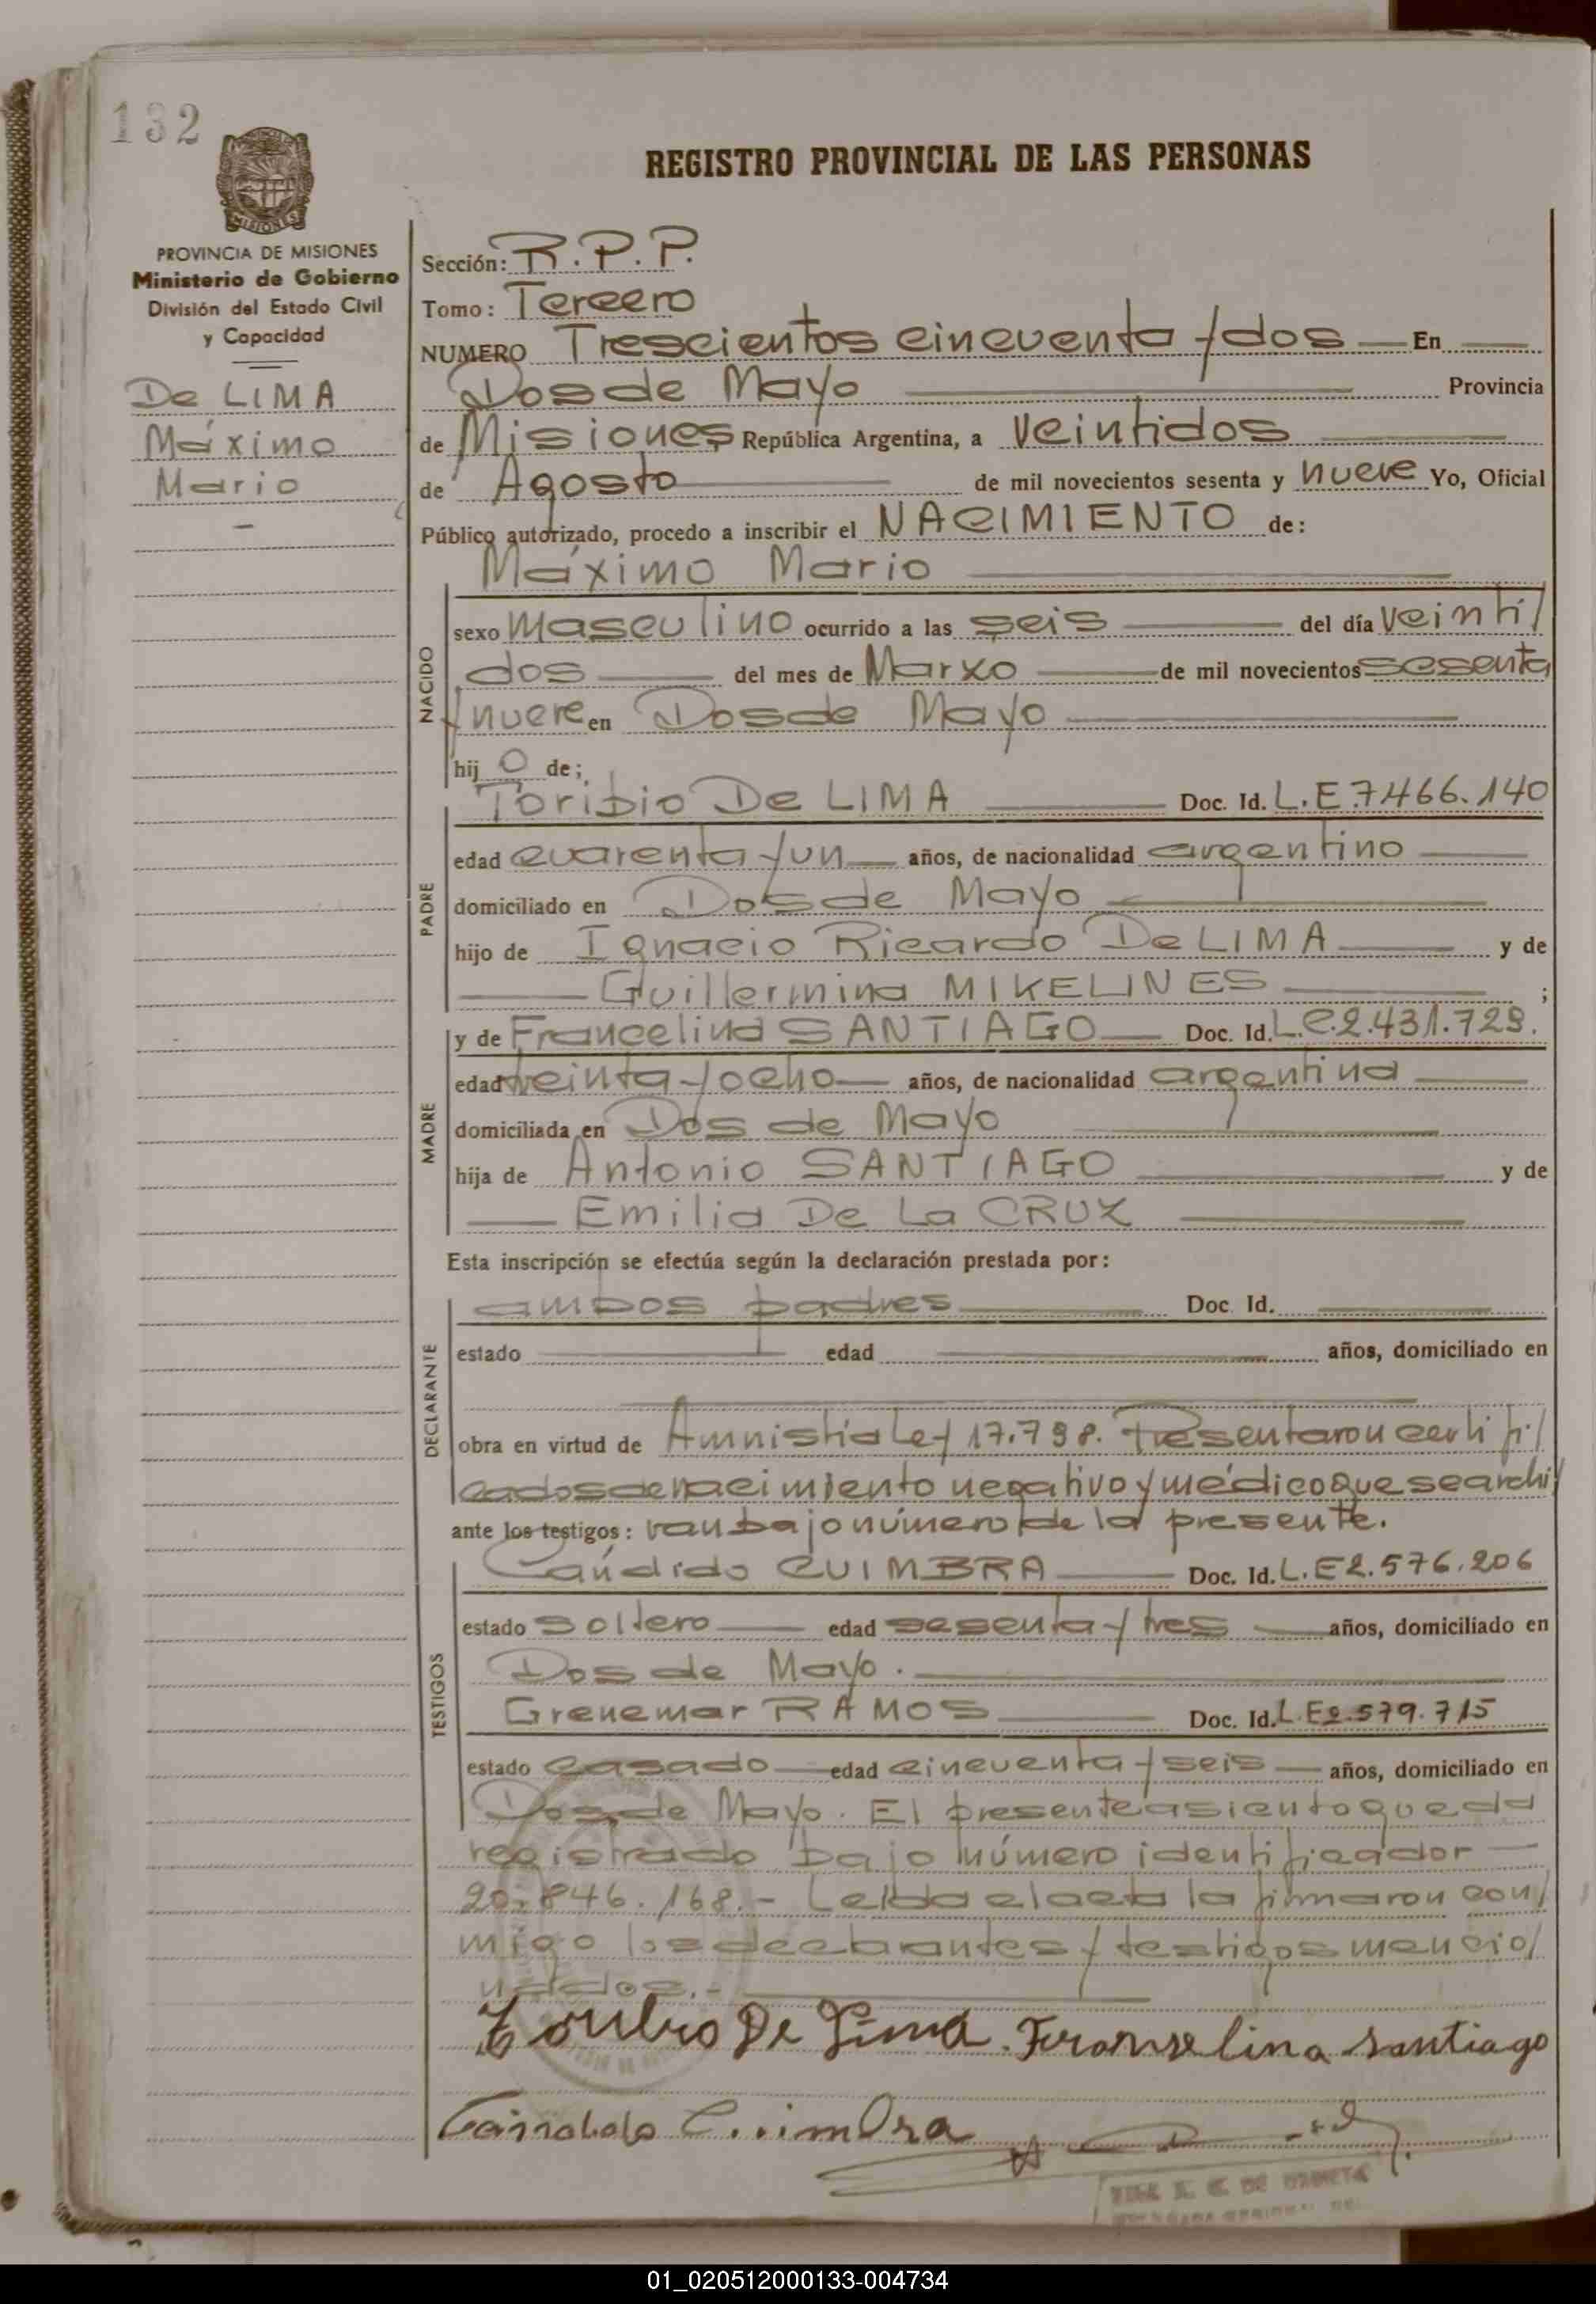 132
REGISTRO PROVINCIAL DE LAS PERSONAS
MISIONES
PROVINCIA DE MISIONES
Ministerio de Gobierno
División del Estado Civil
y Capacidad
De LIMA
Máximo
Mario
Sección: R.P.P.
Tomo: Tercero
NUMERO Trescientos cincuenta y dos En
Dos de Mayo Provincia
de Misiones República Argentina, a veintidos
de Agosto de mil novecientos sesenta y nueve Yo, Oficial
Público autorizado, procedo a inscribir el NACIMIENTO de:
Máximo Mario
NACIDO
sexo masculino ocurrido a las seis del día veinti/
dos del mes de Marzo de mil novecientos sesenta
y nueve en Dos de Mayo
hij o de;
PADRE
Toribio De LIMA Doc. Id. L.E 7.466.140
edad cuarenta y un años, de nacionalidad argentino
domiciliado en Dos de Mayo
hijo de Ignacio Ricardo De LIMA y de
Guillermina MIKELINES ;
MADRE
y de Francelina SANTIAGO Doc. Id. L.C.2.431.729.
edad treinta y ocho años, de nacionalidad argentina
domiciliada en Dos de Mayo
hija de Antonio SANTIAGO y de
Emilia De La CRUZ
Esta inscripción se efectúa según la declaración prestada por:
DECLARANTE
ambos padres Doc. Id.
estado edad años, domiciliado en
obra en virtud de Amnistía Ley 17.798. Presentaron certifi/
cados de nacimiento negativo y médico que se archi/
ante los testigos: van bajo número de la presente.
TESTIGOS
Cándido CUIMBRA Doc. Id. L.E 2.576.206
estado soltero edad sesenta y tres años, domiciliado en
Dos de Mayo.
Grenemar RAMOS Doc. Id. L.E 2.579.715
estado casado edad cincuenta y seis años, domiciliado en
Dos de Mayo. El presente asiento queda
registrado bajo número identificador
20.846.168.- Leída el acta la firmaron con/
migo los declarantes y testigos mencio/
nados.-
Toribio De Lima. Franselina Santiago
Cándido Cuimbra
01_020512000133-004734